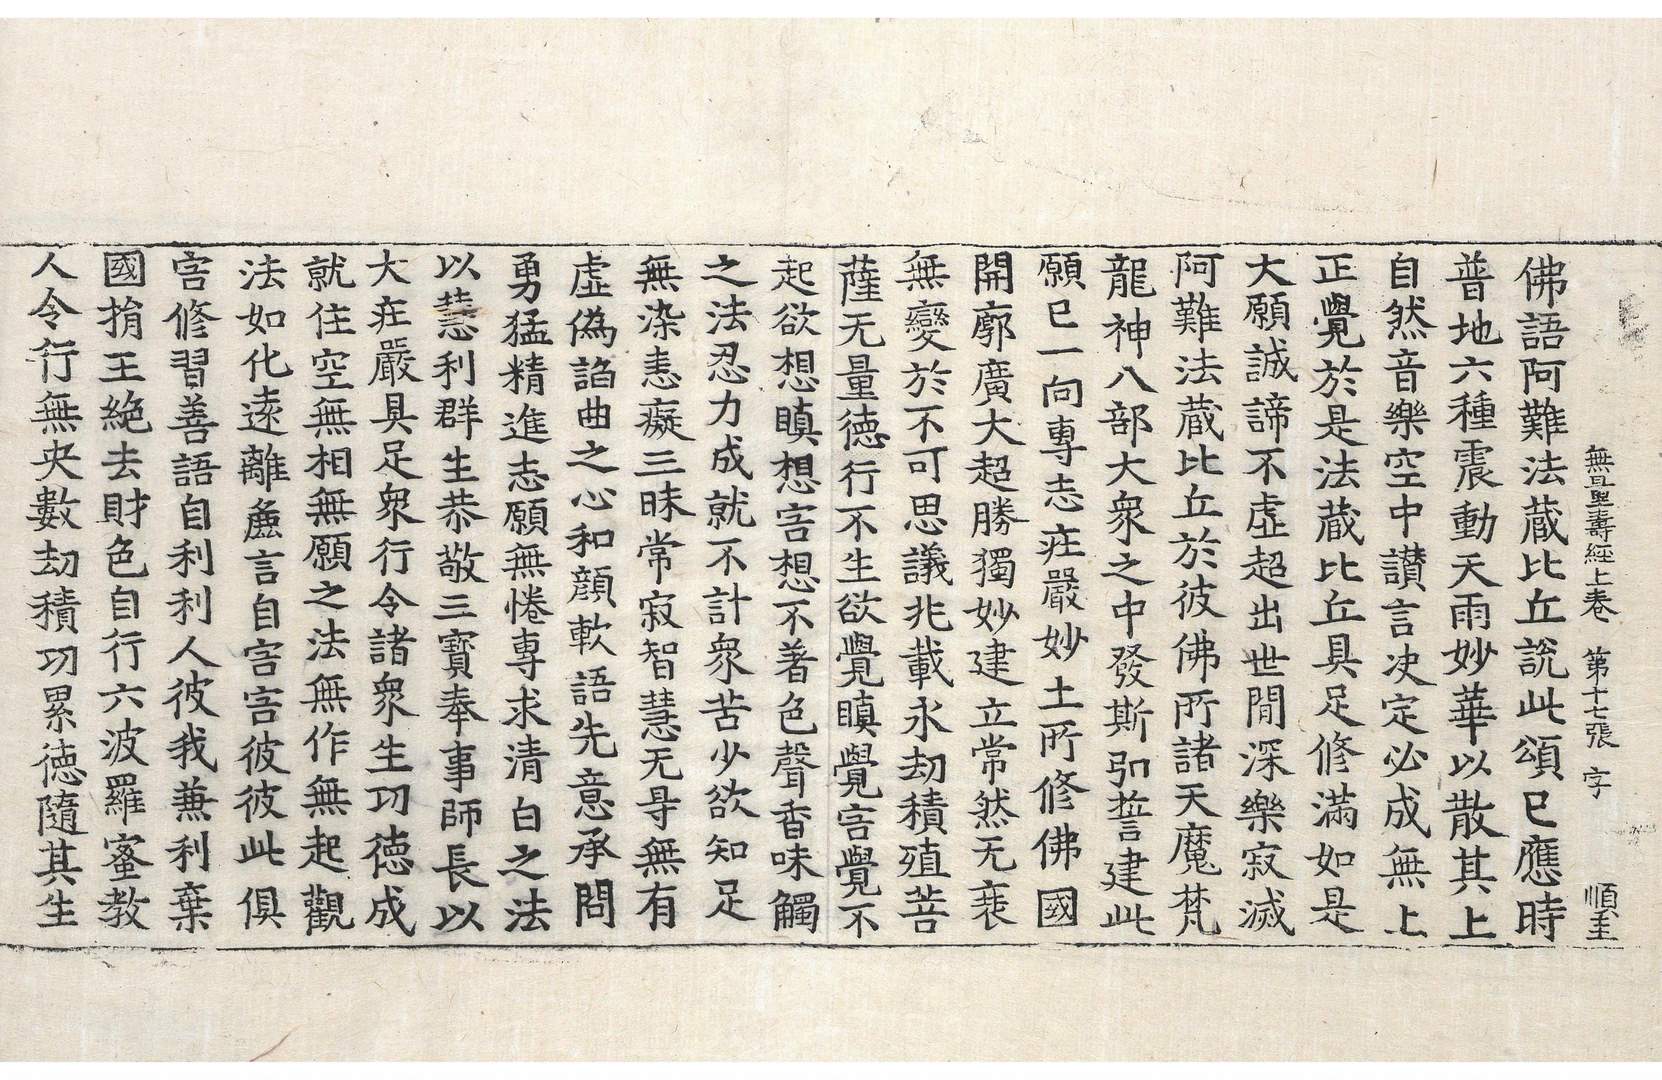 無量壽經上卷 第十七張 字
佛語阿難法蔵比丘說此頌已應時
普地六種震動天雨妙華以散其上
自然音樂空中讃言決定必成無上
正覺於是法蔵比丘具足修滿如是
大願誠諦不虛超出世間深樂寂滅
阿難法蔵比丘於彼佛所諸天魔梵
龍神八部大衆之中發斯弘誓建此
願已一向專志莊嚴妙土所修佛國
開廓廣大超勝獨妙建立常然无衰
無變於不可思議兆載永劫積殖菩
薩无量德行不生欲覺瞋覺害覺不
起欲想瞋想害想不著色聲香味觸
之法忍力成就不計衆苦少欲知足
無染恚癡三昧常寂智慧无㝵無有
虛偽諂曲之心和顏軟語先意承問
勇猛精進志願無惓專求清白之法
以慧利群生恭敬三寶奉事師長以
大莊嚴具足衆行令諸衆生功德成
就住空無相無願之法無作無起觀
法如化遠離麁言自害害彼彼此俱
害修習善語自利利人彼我兼利棄
國捐王絶去財色自行六波羅蜜教
人令行無央數劫積功累德隨其生